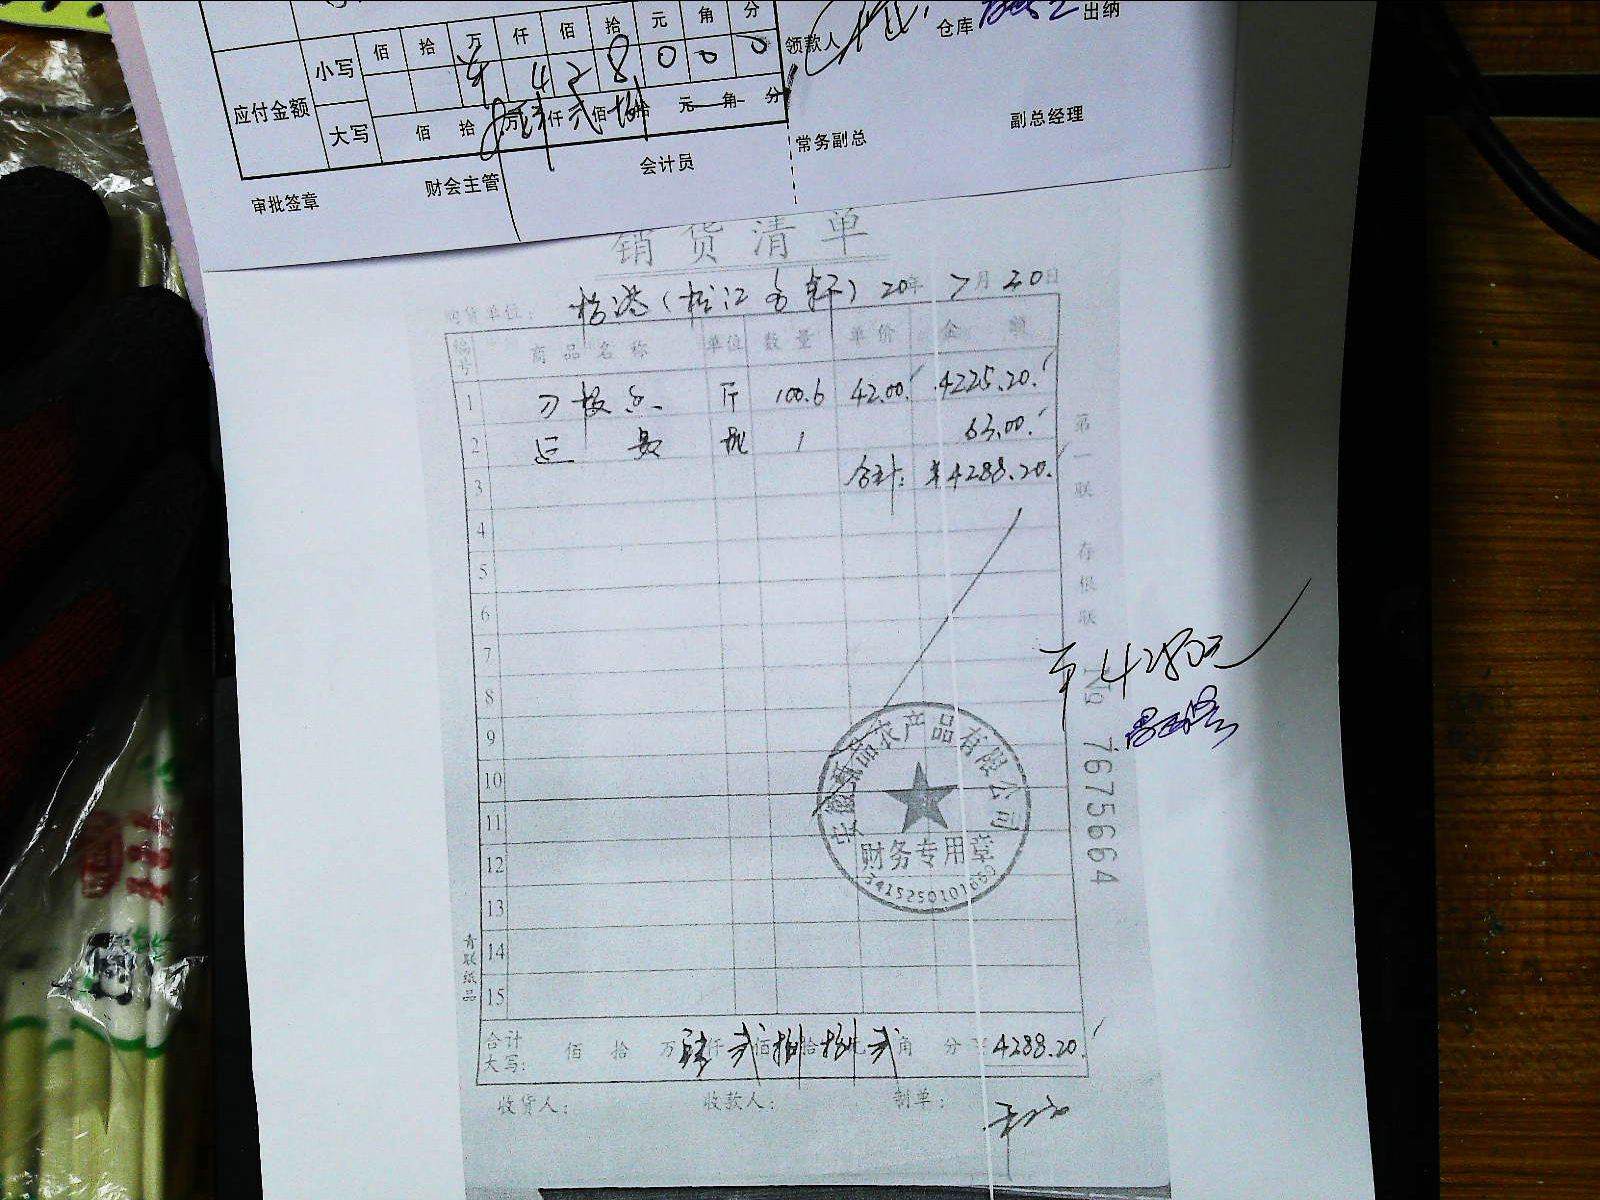 佰 拾 万 仟 佰 拾 元 角 分
应付金额 小写 ¥ 4 2 8 0 0 0
领款人 仓库 出纳
大写 佰 拾 万肆仟贰佰捌拾 元 角 分
审批签章 财会主管 会计员 常务副总 副总经理
销货清单
购货单位: 20年 7月20日
编号 商品名称 单位 数量 单价 金额
1 刀板香 斤 100.6 42.00 4225.20
2 运费 批 1 63.00
3 合计: ¥4288.20
4
5
6
7
8
9
10
11
12
13
14
15
第一联 存根联
¥4280元
No 7675664
农产品有限公司
财务专用章
青联纸品
合计大写: 佰 拾 万肆仟贰佰捌拾捌元贰角 分 ¥4288.20
收货人: 收款人: 制单: